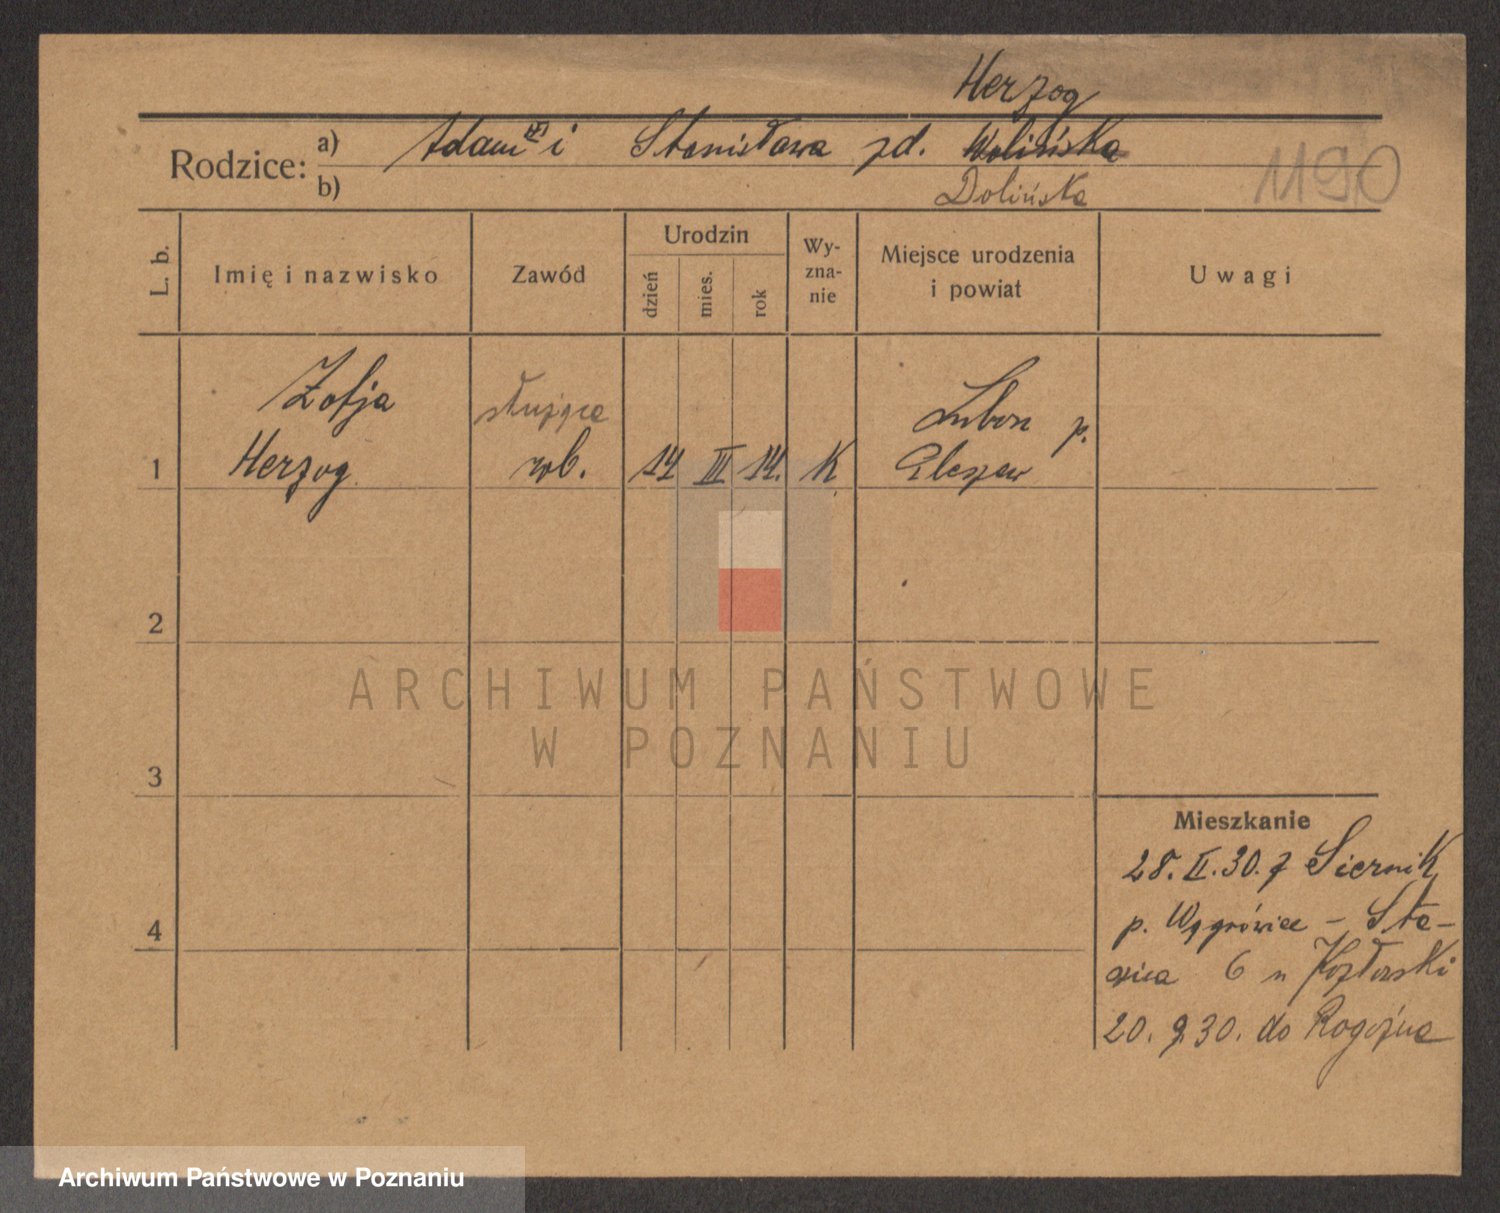 Herzog
Rodzice: a) Adam i Stanisława zd. Wolińska
b) Dolińska
1190
L. b.
Imię i nazwisko
Zawód
Urodzin
dzień
mies.
rok
Wy-
zna-
nie
Miejsce urodzenia
i powiat
Uwagi
Zofja służąca
1 Herzog rob. 14 III 14. K
p.
2
3
4
ARCHIWUM PAŃSTWOWE
W POZNANIU
Mieszkanie
28. II. 30. z Siernik
p. Wągrówiec - Sta-
6 u Kozłowski
20. 9. 30. do Rogoźna
Archiwum Państwowe w Poznaniu